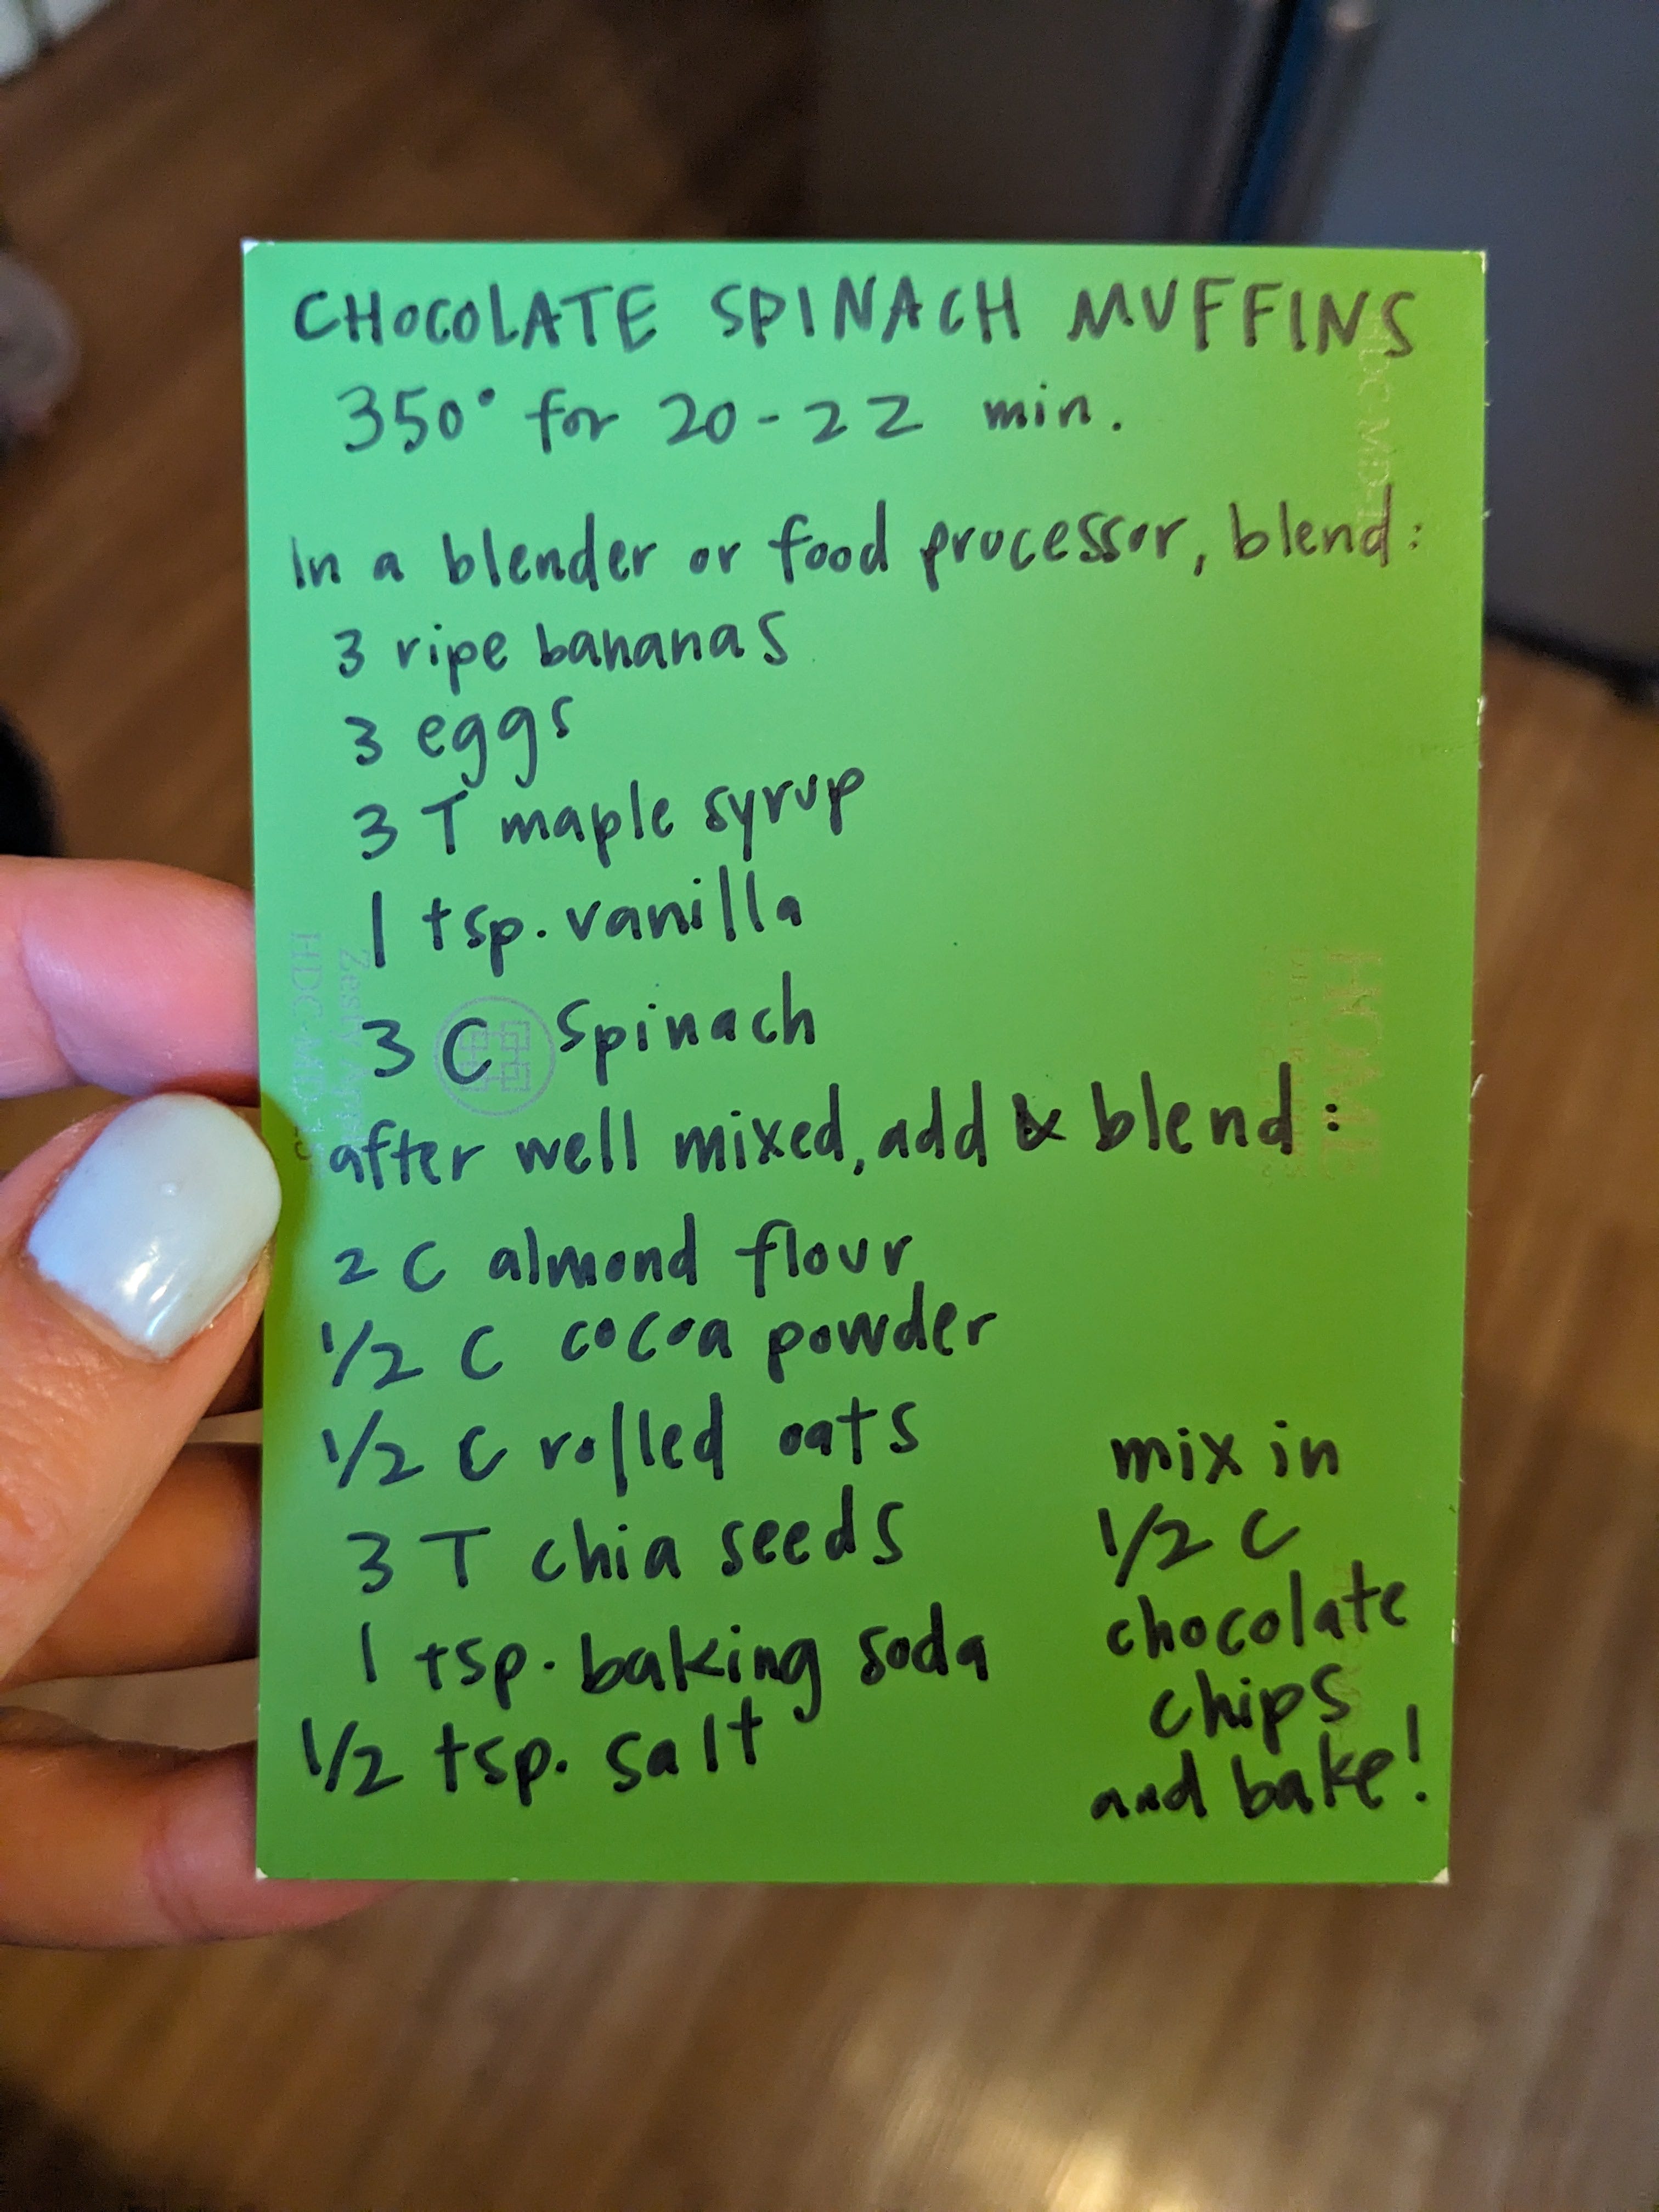 CHOCOLATE SPINACH MUFFINS
350° for 20-22 min.
In a blender or food processor, blend:
3 ripe bananas
3 eggs
3 T maple syrup
1 tsp. vanilla
3 C spinach
after well mixed, add & blend:
2 C almond flour
1/2 C cocoa powder
1/2 C rolled oats
3 T chia seeds
1 tsp. baking soda
1/2 tsp. salt
mix in
1/2 C
chocolate
chips
and bake!
HOME
HDC-MD
Zesty App